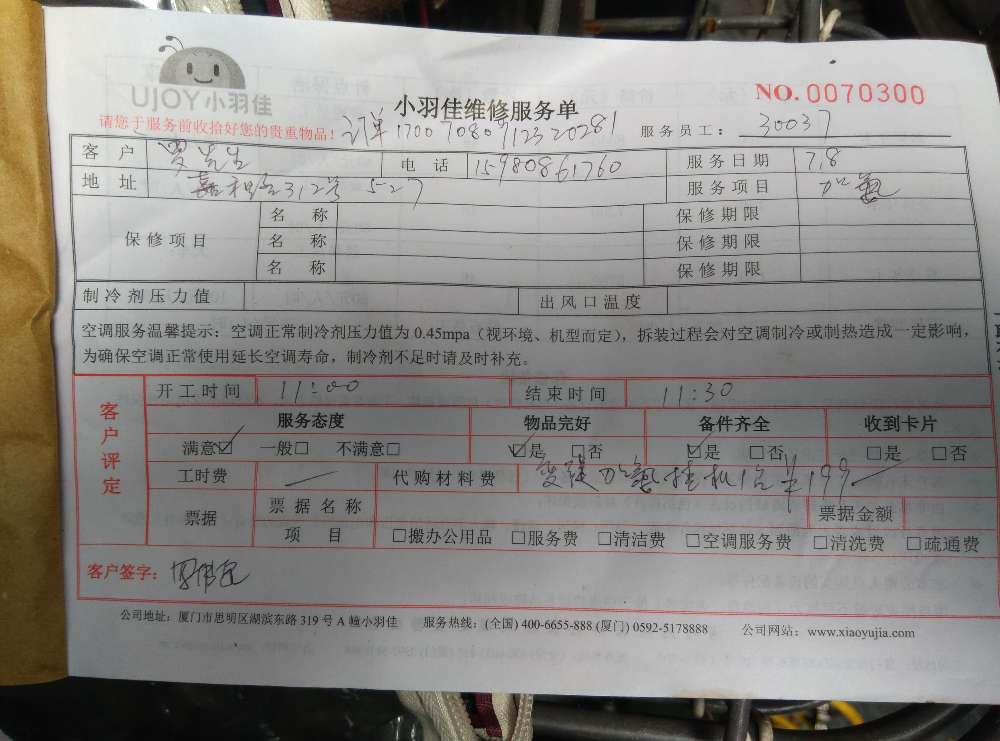 UJOY小羽佳
小羽佳维修服务单
NO. 0070300
请您于服务前收拾好您的贵重物品！
订单 17007080912320281
服务员工： 30037
客户 罗先生 电话 15980861760 服务日期 7.8
地址 嘉禾路312号 527 服务项目 加氟
保修项目 名称 保修期限
名称 保修期限
名称 保修期限
制冷剂压力值 出风口温度
空调服务温馨提示：空调正常制冷剂压力值为 0.45mpa（视环境、机型而定），拆装过程会对空调制冷或制热造成一定影响，
为确保空调正常使用延长空调寿命，制冷剂不足时请及时补充。
客户评定
开工时间 11:00 结束时间 11:30
服务态度 物品完好 备件齐全 收到卡片
满意☑ 一般□ 不满意□ ☑是 □否 ☑是 □否 □是 □否
工时费 — 代购材料费 变频加氟挂机1台 ¥199
票据 票据名称 票据金额
项目 □搬办公用品 □服务费 □清洁费 □空调服务费 □清洗费 □疏通费
客户签字：
公司地址：厦门市思明区湖滨东路 319 号 A 幢小羽佳 服务热线：(全国) 400-6655-888 (厦门) 0592-5178888 公司网站：www.xiaoyujia.com